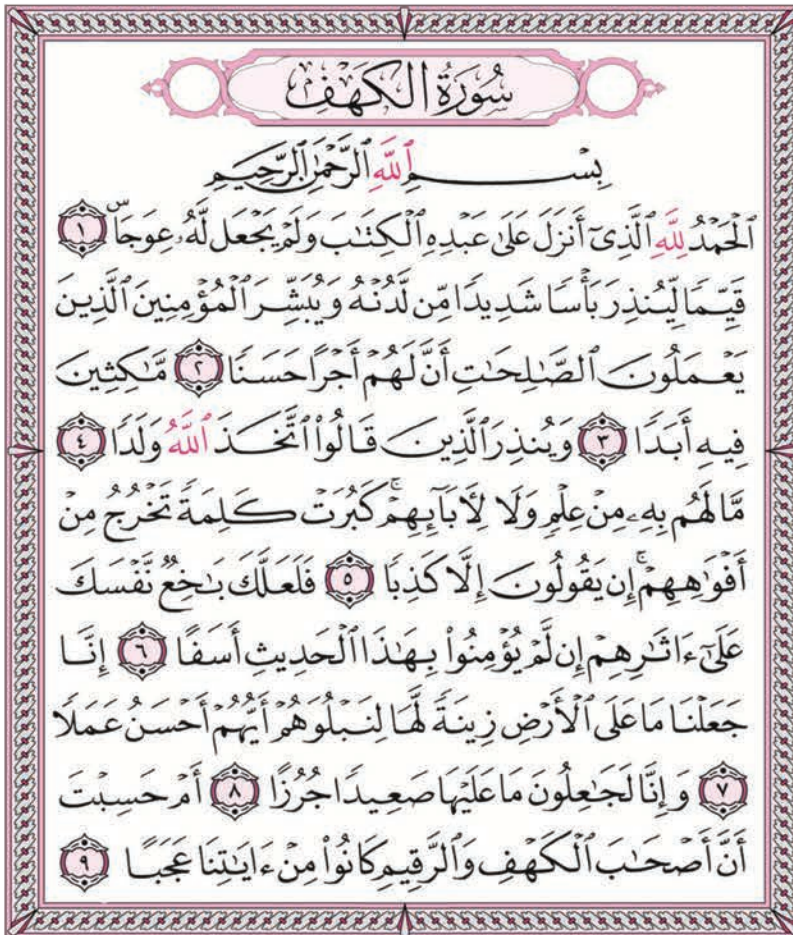 سُورَةُ الكَهْفِ
بِسْمِ ٱللَّهِ ٱلرَّحْمَٰنِ ٱلرَّحِيمِ
ٱلْحَمْدُ لِلَّهِ ٱلَّذِىٓ أَنزَلَ عَلَىٰ عَبْدِهِ ٱلْكِتَٰبَ وَلَمْ يَجْعَل لَّهُۥ عِوَجَاۜ ١
قَيِّمًا لِّيُنذِرَ بَأْسًا شَدِيدًا مِّن لَّدُنْهُ وَيُبَشِّرَ ٱلْمُؤْمِنِينَ ٱلَّذِينَ
يَعْمَلُونَ ٱلصَّٰلِحَٰتِ أَنَّ لَهُمْ أَجْرًا حَسَنًا ٢ مَّٰكِثِينَ
فِيهِ أَبَدًا ٣ وَيُنذِرَ ٱلَّذِينَ قَالُوا۟ ٱتَّخَذَ ٱللَّهُ وَلَدًا ٤
مَّا لَهُم بِهِۦ مِنْ عِلْمٍ وَلَا لِأَبَآئِهِمْ ۚ كَبُرَتْ كَلِمَةً تَخْرُجُ مِنْ
أَفْوَٰهِهِمْ ۚ إِن يَقُولُونَ إِلَّا كَذِبًا ٥ فَلَعَلَّكَ بَٰخِعٌ نَّفْسَكَ
عَلَىٰٓ ءَاثَٰرِهِمْ إِن لَّمْ يُؤْمِنُوا۟ بِهَٰذَا ٱلْحَدِيثِ أَسَفًا ٦ إِنَّا
جَعَلْنَا مَا عَلَى ٱلْأَرْضِ زِينَةً لَّهَا لِنَبْلُوَهُمْ أَيُّهُمْ أَحْسَنُ عَمَلًا
٧ وَإِنَّا لَجَٰعِلُونَ مَا عَلَيْهَا صَعِيدًا جُرُزًا ٨ أَمْ حَسِبْتَ
أَنَّ أَصْحَٰبَ ٱلْكَهْفِ وَٱلرَّقِيمِ كَانُوا۟ مِنْ ءَايَٰتِنَا عَجَبًا ٩